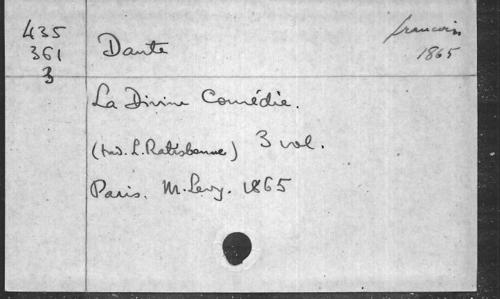 435
361
3
Dante
francoin
1865
La Divine Comédie.
(trad. L. Ratisbonne) 3 vol.
Paris. M. Levy. 1865